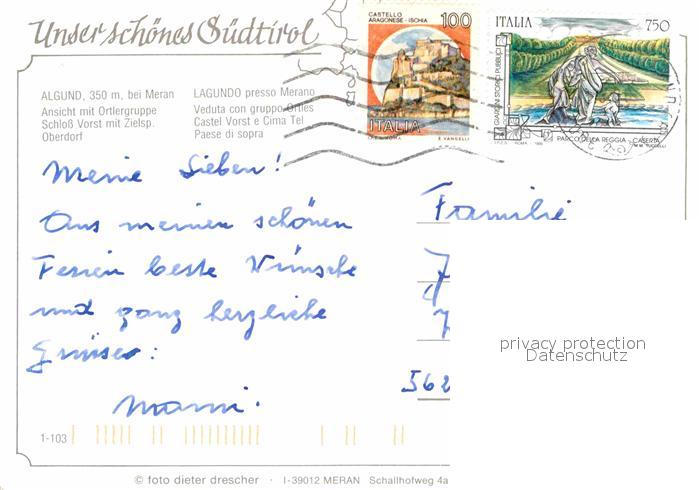 Unser schönes Südtirol
ALGUND, 350 m, bei Meran
Ansicht mit Ortlergruppe
Schloß Vorst mit Zielsp.
Oberdorf
LAGUNDO presso Merano
Veduta con gruppo Ortles
Castel Vorst e Cima Tel
Paese di sopra
CASTELLO
ARAGONESE - ISCHIA
100
ITALIA
E. VANGELLI
ITALIA
750
GIARDINI STORICI PUBBLICI
PARCO DELLA REGGIA - CASERTA
M.M. TUCCELLI
Meine Lieben!
Aus meinen schönen
Ferien beste Wünsche
und ganz herzliche
Grüsse:
Mami.
Familie
562
privacy protection
Datenschutz
1-103
© foto dieter drescher · I-39012 MERAN Schallhofweg 4a